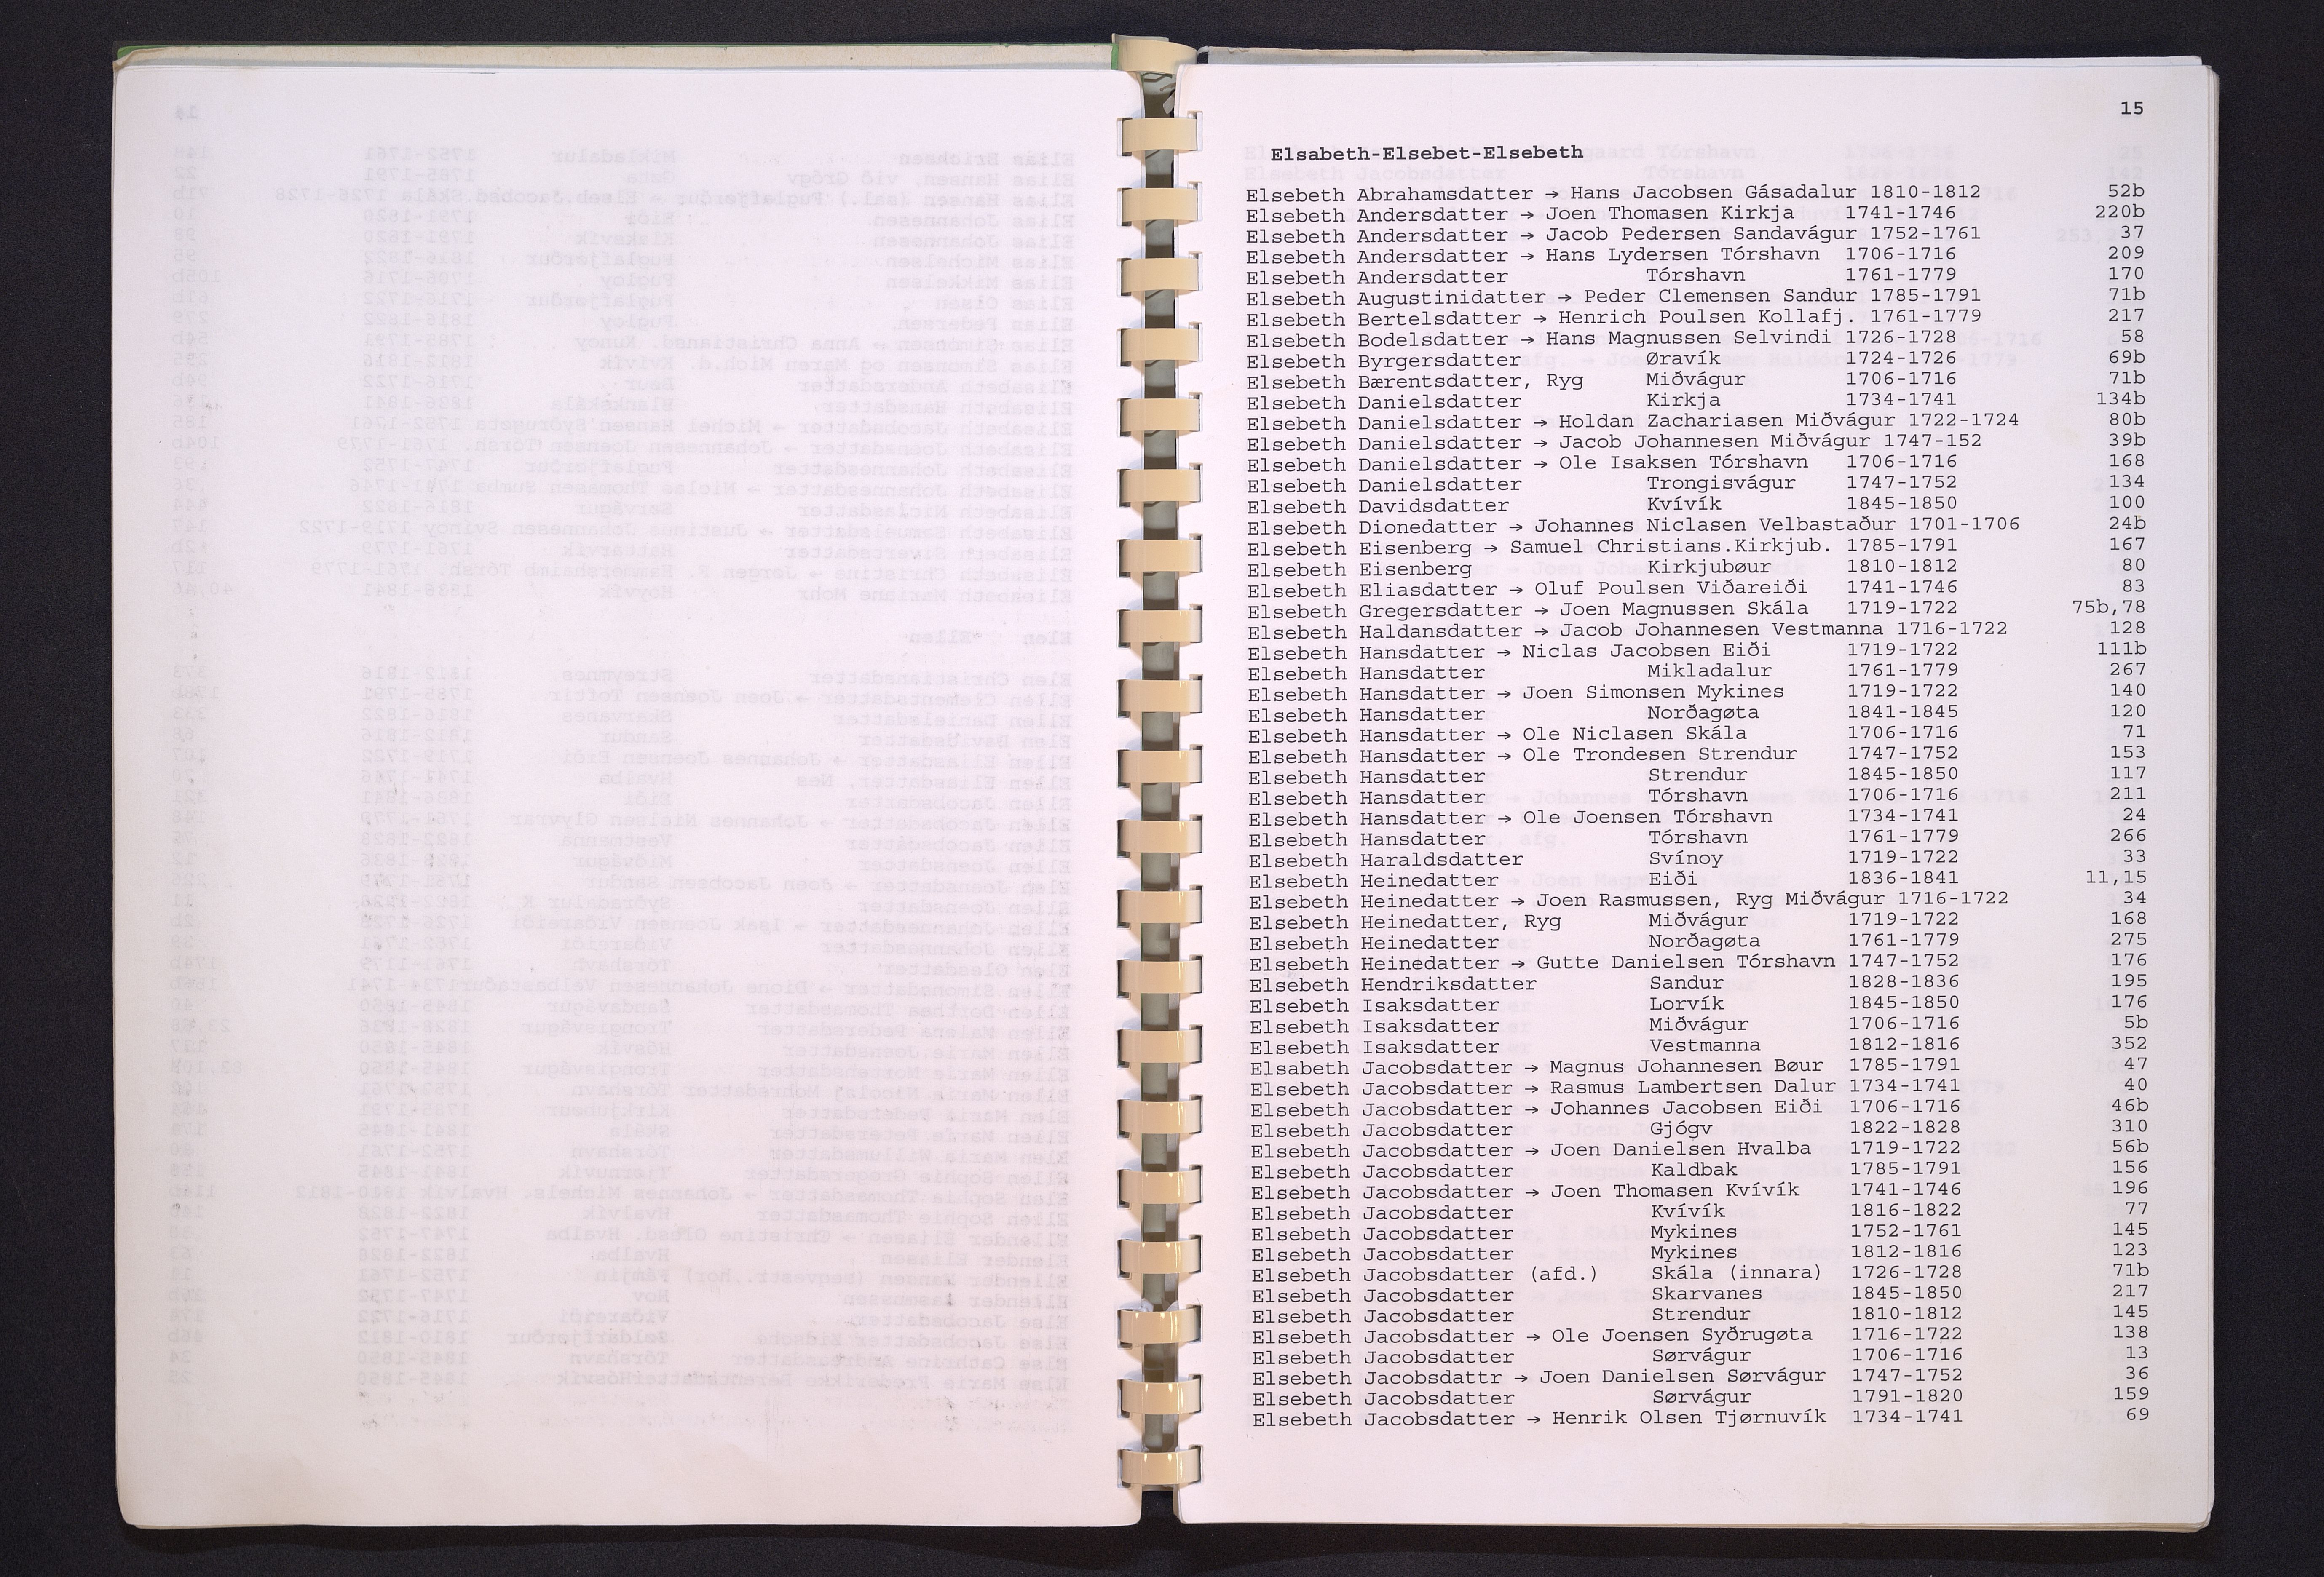 15
Elsabeth-Elsebet-Elsebeth
Elsebeth Abrahamsdatter → Hans Jacobsen Gásadalur 1810-1812 52b
Elsebeth Andersdatter → Joen Thomasen Kirkja 1741-1746 220b
Elsebeth Andersdatter → Jacob Pedersen Sandavágur 1752-1761 37
Elsebeth Andersdatter → Hans Lydersen Tórshavn 1706-1716 209
Elsebeth Andersdatter Tórshavn 1761-1779 170
Elsebeth Augustinidatter → Peder Clemensen Sandur 1785-1791 71b
Elsebeth Bertelsdatter → Henrich Poulsen Kollafj. 1761-1779 217
Elsebeth Bodelsdatter → Hans Magnussen Selvindi 1726-1728 58
Elsebeth Byrgersdatter Øravík 1724-1726 69b
Elsebeth Bærentsdatter, Ryg Miðvágur 1706-1716 71b
Elsebeth Danielsdatter Kirkja 1734-1741 134b
Elsebeth Danielsdatter → Holdan Zachariasen Miðvágur 1722-1724 80b
Elsebeth Danielsdatter → Jacob Johannesen Miðvágur 1747-152 39b
Elsebeth Danielsdatter → Ole Isaksen Tórshavn 1706-1716 168
Elsebeth Danielsdatter Trongisvágur 1747-1752 134
Elsebeth Davidsdatter Kvívík 1845-1850 100
Elsebeth Dionedatter → Johannes Niclasen Velbastaður 1701-1706 24b
Elsebeth Eisenberg → Samuel Christians.Kirkjub. 1785-1791 167
Elsebeth Eisenberg Kirkjubøur 1810-1812 80
Elsebeth Eliasdatter → Oluf Poulsen Viðareiði 1741-1746 83
Elsebeth Gregersdatter → Joen Magnussen Skála 1719-1722 75b,78
Elsebeth Haldansdatter → Jacob Johannesen Vestmanna 1716-1722 128
Elsebeth Hansdatter → Niclas Jacobsen Eiði 1719-1722 111b
Elsebeth Hansdatter Mikladalur 1761-1779 267
Elsebeth Hansdatter → Joen Simonsen Mykines 1719-1722 140
Elsebeth Hansdatter Norðagøta 1841-1845 120
Elsebeth Hansdatter → Ole Niclasen Skála 1706-1716 71
Elsebeth Hansdatter → Ole Trondesen Strendur 1747-1752 153
Elsebeth Hansdatter Strendur 1845-1850 117
Elsebeth Hansdatter Tórshavn 1706-1716 211
Elsebeth Hansdatter → Ole Joensen Tórshavn 1734-1741 24
Elsebeth Hansdatter Tórshavn 1761-1779 266
Elsebeth Haraldsdatter Svínoy 1719-1722 33
Elsebeth Heinedatter Eiði 1836-1841 11,15
Elsebeth Heinedatter → Joen Rasmussen, Ryg Miðvágur 1716-1722 34
Elsebeth Heinedatter, Ryg Miðvágur 1719-1722 168
Elsebeth Heinedatter Norðagøta 1761-1779 275
Elsebeth Heinedatter → Gutte Danielsen Tórshavn 1747-1752 176
Elsebeth Hendriksdatter Sandur 1828-1836 195
Elsebeth Isaksdatter Lorvík 1845-1850 176
Elsebeth Isaksdatter Miðvágur 1706-1716 5b
Elsebeth Isaksdatter Vestmanna 1812-1816 352
Elsabeth Jacobsdatter → Magnus Johannesen Bøur 1785-1791 47
Elsebeth Jacobsdatter → Rasmus Lambertsen Dalur 1734-1741 40
Elsebeth Jacobsdatter → Johannes Jacobsen Eiði 1706-1716 46b
Elsebeth Jacobsdatter Gjógv 1822-1828 310
Elsebeth Jacobsdatter → Joen Danielsen Hvalba 1719-1722 56b
Elsebeth Jacobsdatter Kaldbak 1785-1791 156
Elsebeth Jacobsdatter → Joen Thomasen Kvívík 1741-1746 196
Elsebeth Jacobsdatter Kvívík 1816-1822 77
Elsebeth Jacobsdatter Mykines 1752-1761 145
Elsebeth Jacobsdatter Mykines 1812-1816 123
Elsebeth Jacobsdatter (afd.) Skála (innara) 1726-1728 71b
Elsebeth Jacobsdatter Skarvanes 1845-1850 217
Elsebeth Jacobsdatter Strendur 1810-1812 145
Elsebeth Jacobsdatter → Ole Joensen Syðrugøta 1716-1722 138
Elsebeth Jacobsdatter Sørvágur 1706-1716 13
Elsebeth Jacobsdattr → Joen Danielsen Sørvágur 1747-1752 36
Elsebeth Jacobsdatter Sørvágur 1791-1820 159
Elsebeth Jacobsdatter → Henrik Olsen Tjørnuvík 1734-1741 69